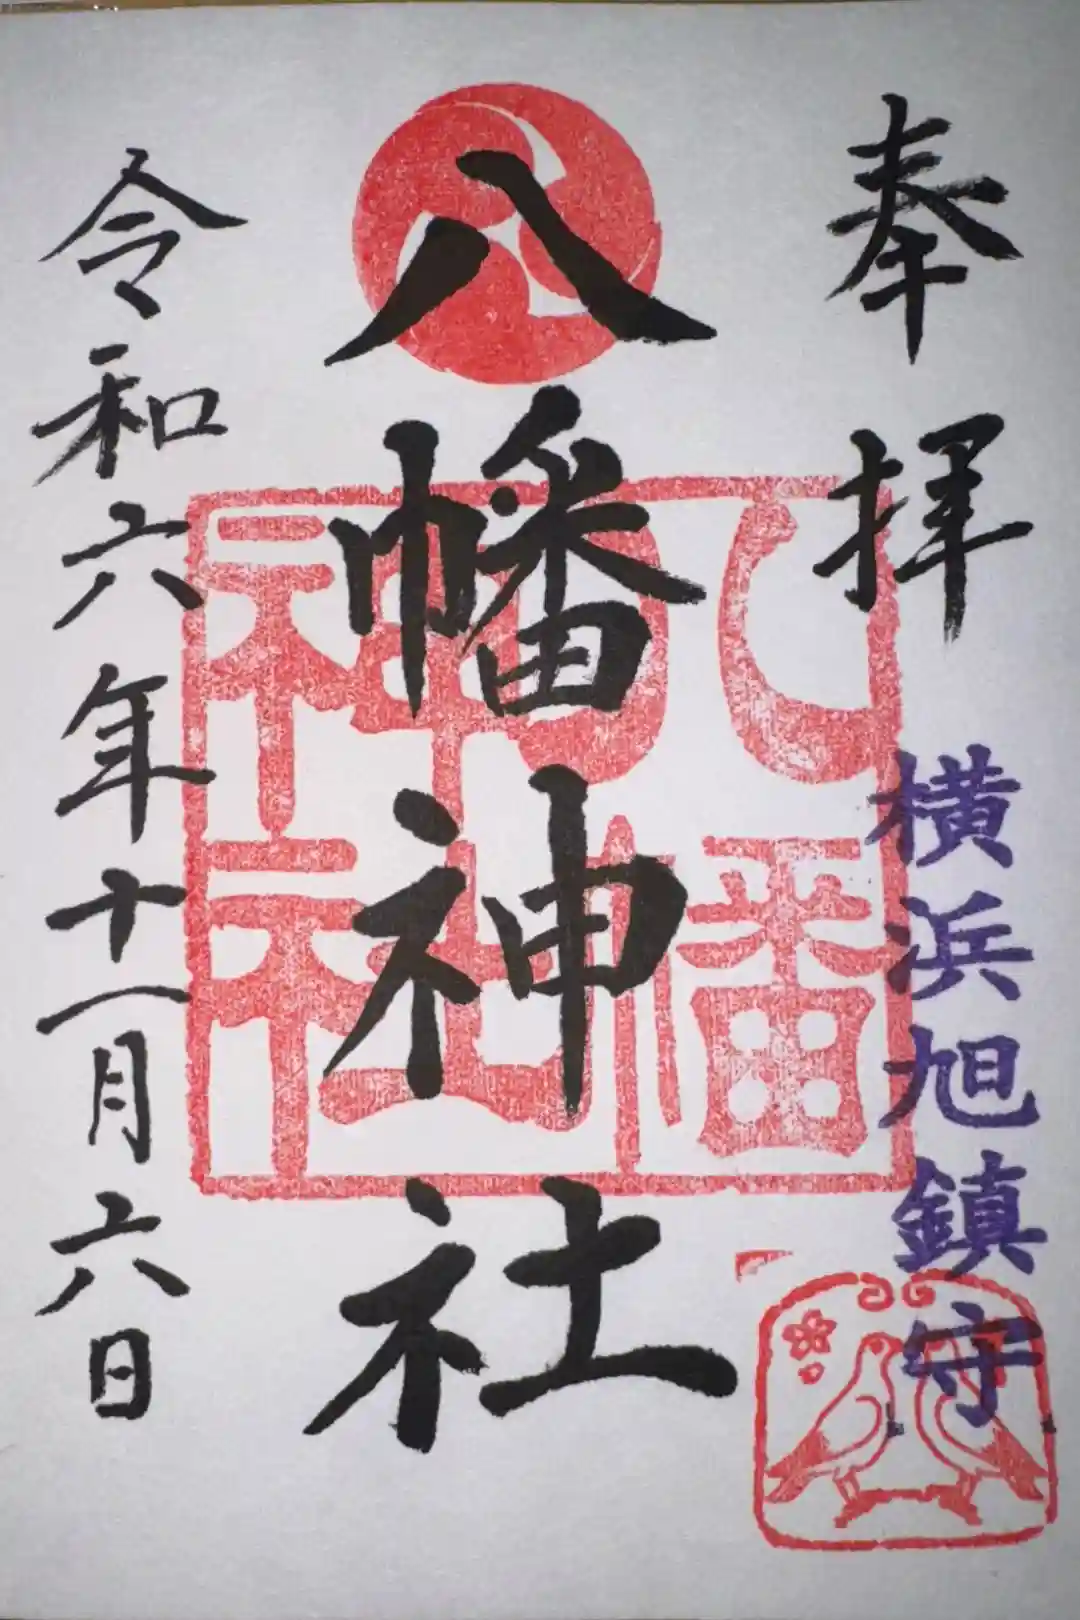 奉拝
横浜旭鎮守
八幡神社
八幡
神社
令和六年十一月六日